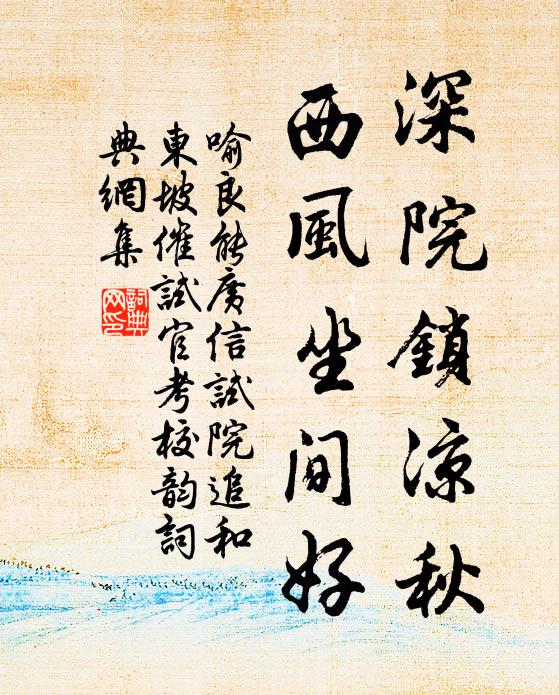 深院鎖凉秋
西風坐間好
喻良能廣信試院追和
東坡催試官考校韵詞
典網集
詞典網印